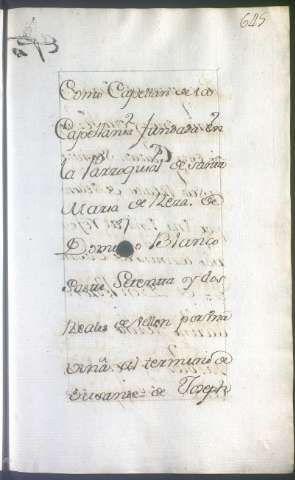 645
Como Capellan de la
Capellania fundada en
la Parroquia de Santa
Maria de Nera. de
Domingo Blanco
Pagué Setenta y dos
Reales de Vellon por una
viña al termino de
de Joseph